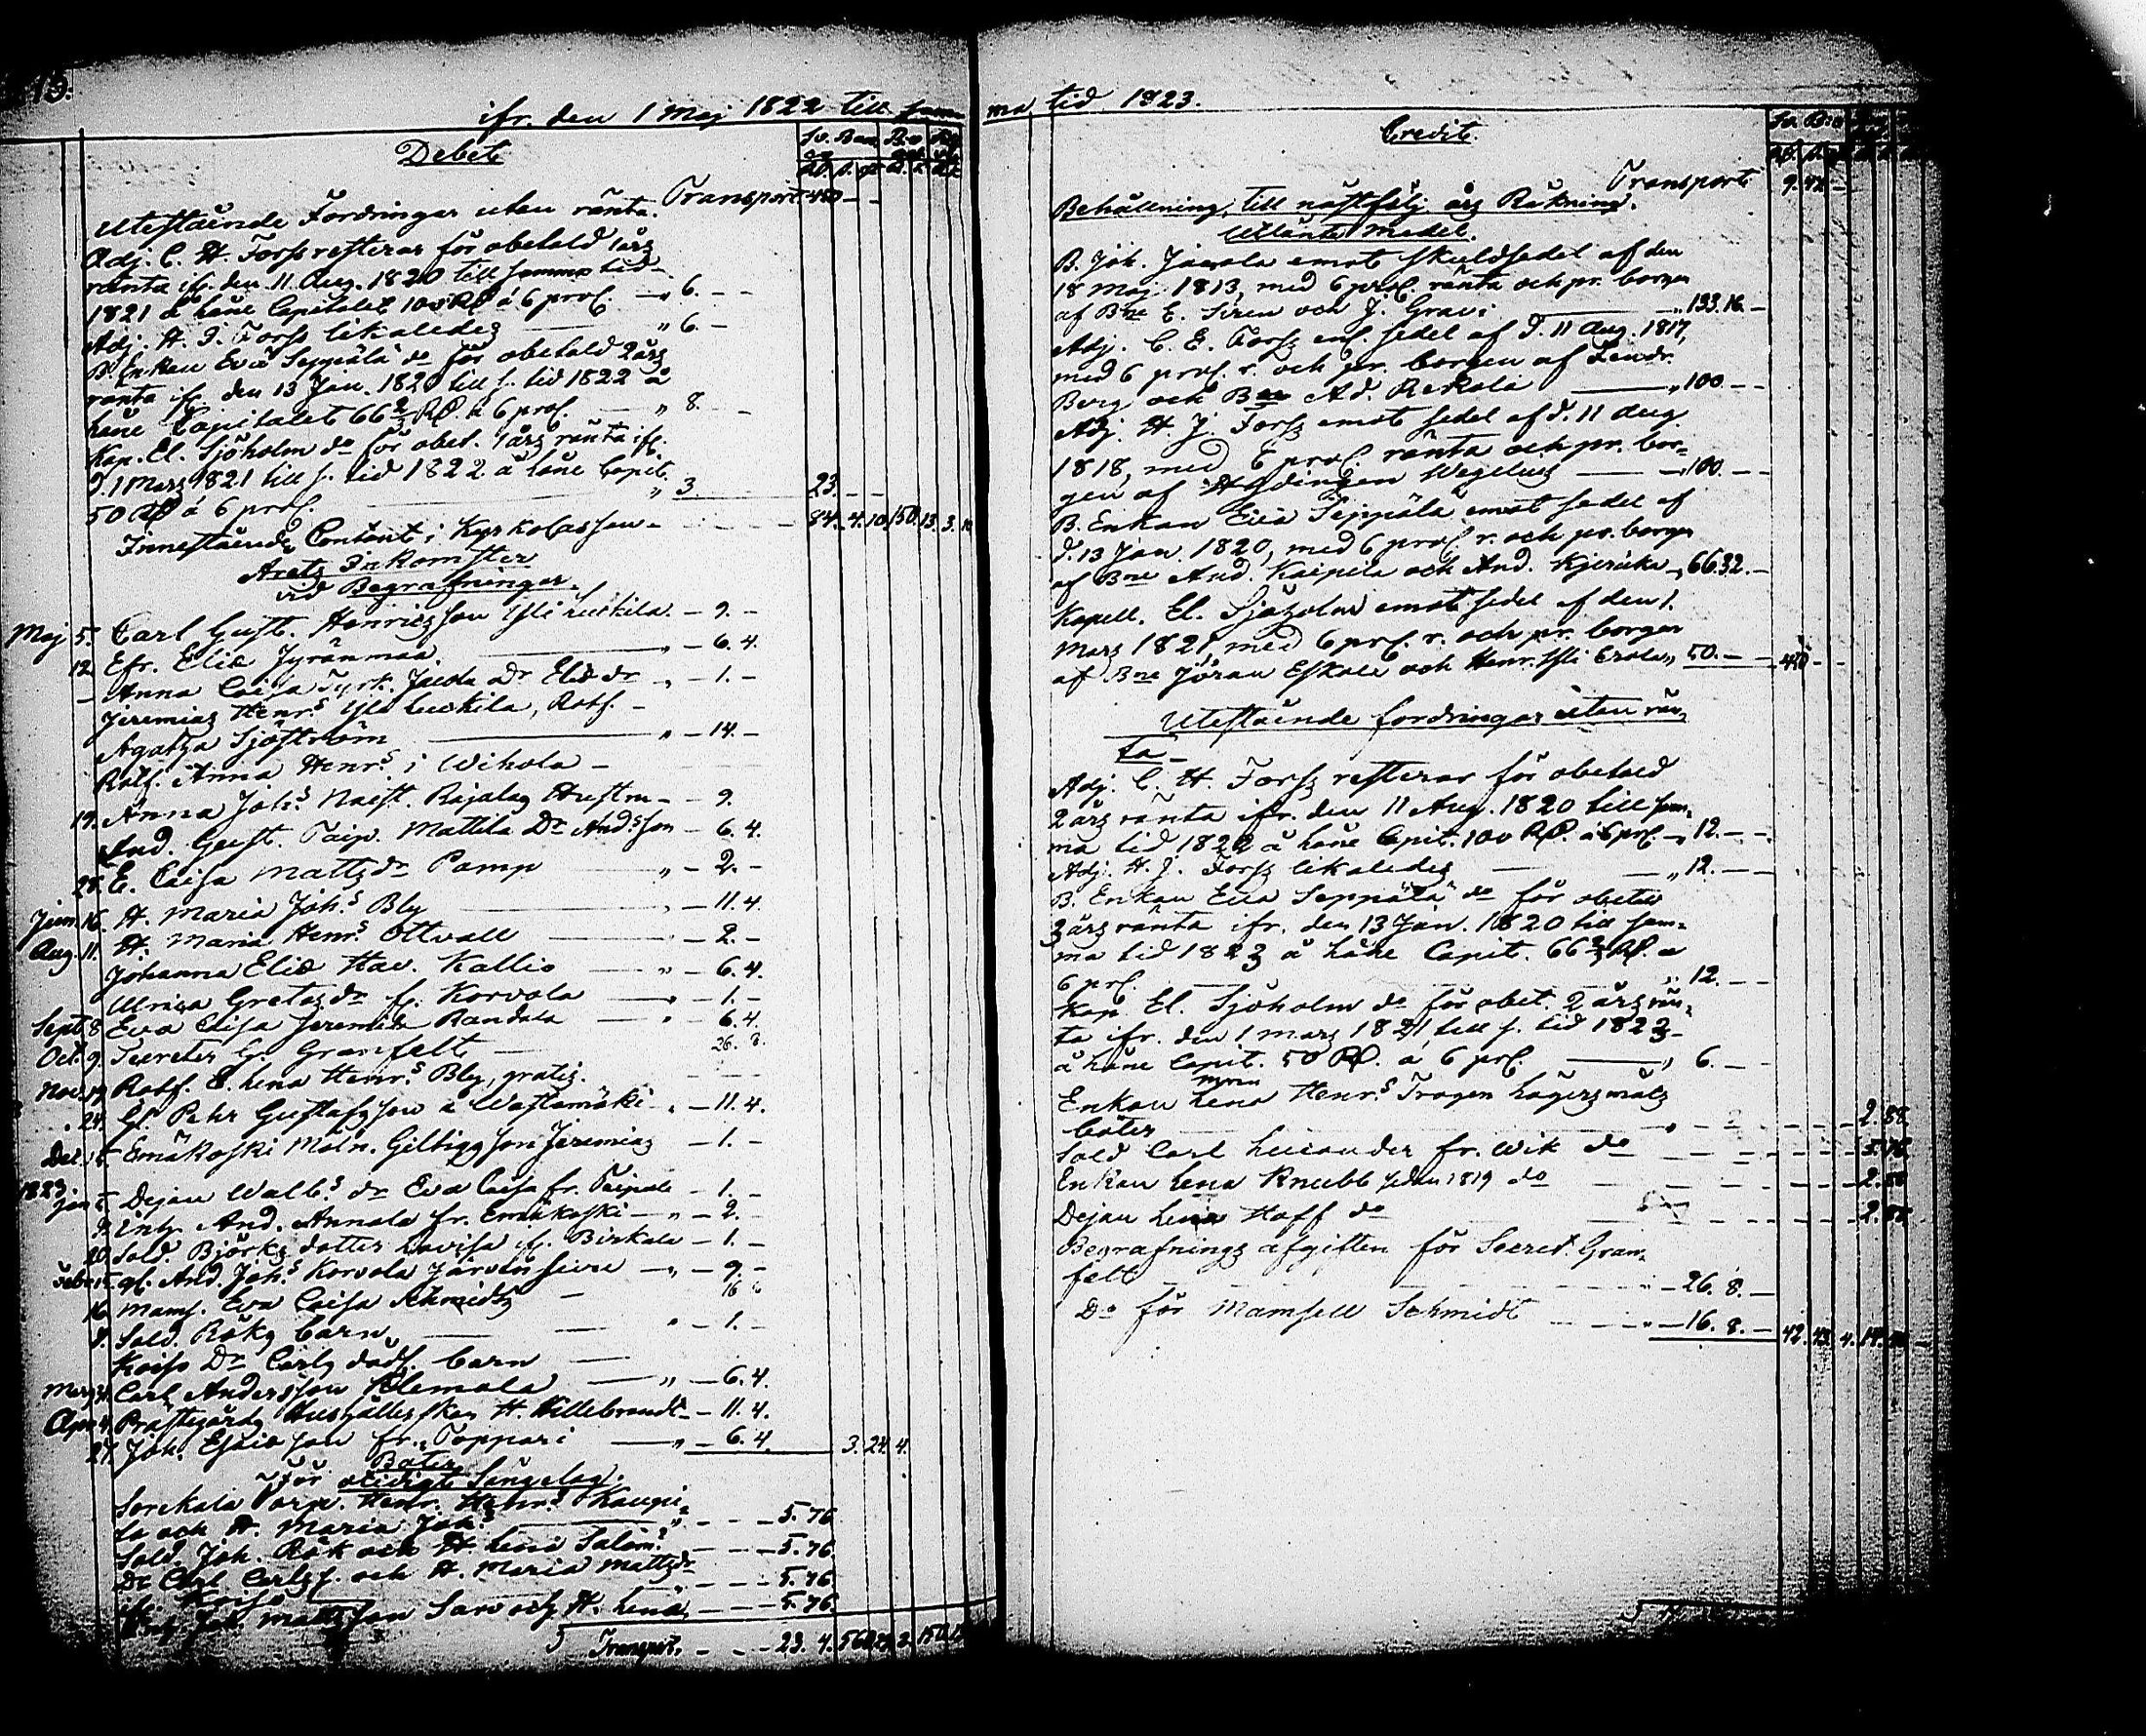 ifr. den 1 Maj 1822 till samma tid 1823.
Debet
Transport 450 – –
Utestående Fordringar utan ränta.
Adj. C. H. Forss resterar för obetald 1 års
ränta ifr. den 11 Aug. 1820 till samma tid
1821 å håne Capitalet 100 RD á 6 proC. — „ 6. – –
Adj. H. J. Forss likaledes — „ 6. –
B. Enkan Eva Seppälä do för obetald 2 års
ränta ifr. den 13 Jan. 1820 till s. tid 1822 å
håne Capitalet 66 2/3 RD. á 6 proC. — „ 8. – –
Kap. El. Sjöholm do för obet. 1 års ränta ifr.
d. 1 Mars 1821 till s. tid 1822 å håne Capit.
50 RD á 6 proC. „ 3. 23. – –
Innestående Contant i Kyrkocassan – 84. 4. 10. 150. 13. 3.
Årets Inkomster
vid Begrafningar.
Maj 5. Carl Gust. Henricsson Yli Luckila. – 9. –
12. Efr. Eliæ Jyränmaa. „ – 6. 4.
– Anna Caisa Jacobs dr Eliæ dr „ – 1. –
Jeremias Henrs Yli Luckila, Rotf. –
Agatha Sjöström „ – 14. –
Rotf. Anna Henrs i Wihola –
19. Anna Johs Naist. Rajalas Hustru – – 9.
And. Gust. Taip. Mattila Dr Andsson – 6. 4.
28. E. Caisa Mattsdr Pamp „ – 2. –
Jun. 16. H. Maria Johs Bly – 11. 4.
Aug. 11. H. Maria Henrs Ottvall – 2. –
Johanna Eliæ Hav. Kallio „ – 6. 4.
Ulrica Gretas dr fr. Korvola „ – 1. –
Sept. 8. Eva Caisa Jeremiæ Randala – 6. 4.
Oct. 9. Secreter G. Granfelt — 26. 8.
Nov. 17. Rotf. E. Lena Henrs Bly, gratis.
24. Gl. Pehr Gustafsson a Wästamäki – 11. 4.
Dec. 15. Emäkoski Möln. son Jeremias – 1. –
1823
Jan. 5. Dejan Walbs dr Eva Caisa fr. Taipale – 1. –
9. Inh. And. Annala fr. Emäkoski – „ – 2. –
20. Sold. Björks dotter Lovisa ifr. Birkala – 1. –
Febr. 15. gl. And. Johs Korvola Järvensivu – „ – 9. –
16. Mams. Eva Caisa Schmidts – 16. 8.
9. Sold. Röks barn — „ – 1. –
Koiso Dr Carls dödf. barn —
Mars 31. Carl Andersson Klemola — „ – 6. 4.
Apr. 4. Prästegårds Hushållerskan H. Hillebrandt – 11. 4.
27. Joh. Esaiæson fr. Toppari — „ – 6. 4. 3. 24. 4.
Böter
För otidigt Sängelag.
Torp. Henr. Henrs Kaupi-
la och H. Maria Johs „ – – – 5. 76.
Sold. Joh. Rök och H. Lena Salom. – – – 5. 76.
Dr Carl Carlss. och H. Maria Mattsdr
fr. Koiso „ – – – 5. 76.
Joh. Mattsson Savo och H. Lena – – – 5. 76.
Transport. – – – 23. 4. 560. 29. 2. 150.
Credit
Transport 9. 42 –
Behållning till nästfölj. års Räkning.
Utlånte Medel.
B. Joh. Jaevola emot skuldsedel af den
18 Maj 1813, med 6 proC. ränta och pr. borgen
af Bne E. Siren och J. Gravi — „ 133. 16. –
Adj. C. E. Forss enl. sedel af d. 11 Aug. 1817,
med 6 proC. r. och pr. borgen af Lendr.
Berg och Bne Ad. Rekola — „ 100. – –
Adj. H. J. Forss emot sedel af d. 11 Aug
1818, med 6 proC. ränta och pr. bor-
gen af Wegelius — 100. – –
B. Enkan Eva Seppälä emot sedel af
d. 13 Jan. 1820, med 6 proC. r. och pr. borgen
af Bne And. Kaipila och And. – 66. 32. –
Kapell. El. Sjöholm emot sedel af den 1.
Mars 1821, med 6 prC. r. och pr. borgen
af Bne Jöran Eskola och Henr. Yli Erola „ 50. – – 450 – –
Utestående fordringar utan rän-
ta –
Adj. C. H. Forss resterar för obetald
2 års ränta ifr. den 11 Aug. 1820 till sam-
ma tid 1822 å håne Capit. 100 RD. á 6 prC. – „ 12. – –
Adj. H. J. Forss likaledes — „ 12. – –
B. Enkan Eva Seppälä do för obetald
3 års ränta ifr. den 13 Jan. 1820 till sam-
ma tid 1823 å håne Capit. 66 2/3 RD. a
6 prC. „ 12. – –
Kap. El. Sjöholm do för obet. 2 års rän-
ta ifr. den 1 Mars 1821 till s. tid 1823 –
å håne Capit. 50 RD. á 6 prC. — „ 6. – –
Enkan Lena Henrs Trogen Lägersmåls
böter — 2. 88.
Sold. Carl Lucander fr. Wik do — 5. 76.
Enkan Lena Knubb sedan 1819 do — 2. 88
Dejan Lena Hoff do — 2. 88
Begrafnings afgiften för Secret. Gran-
felt — – 26. 8. –
Do för Mamsell Schmidt — „ – 16. 8. – 42. 43. 4. 14.